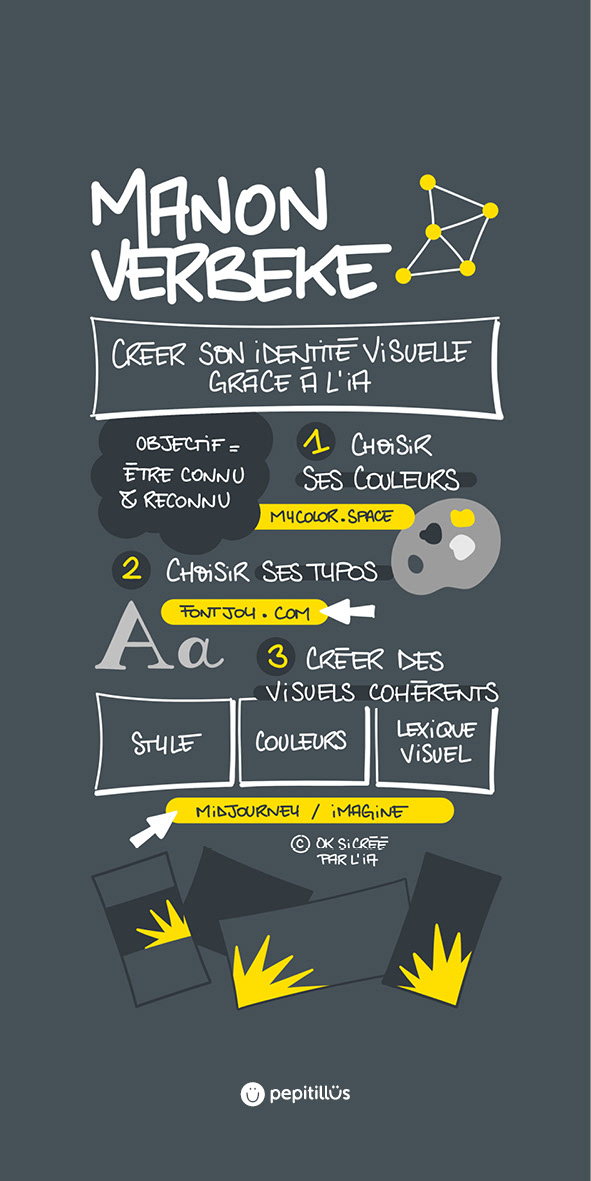 MANON
VERBEKE
CRÉER SON IDENTITÉ VISUELLE
GRÂCE À L'IA
OBJECTIF =
ÊTRE CONNU
& RECONNU
1 CHOISIR
SES COULEURS
MYCOLOR.SPACE
2 CHOISIR SES TYPOS
FONTJOY.COM
Aa
3 CRÉER DES
VISUELS COHÉRENTS
STYLE
COULEURS
LEXIQUE
VISUEL
MIDJOURNEY / IMAGINE
© OK SI CRÉÉ
PAR L'IA
pepitillüs